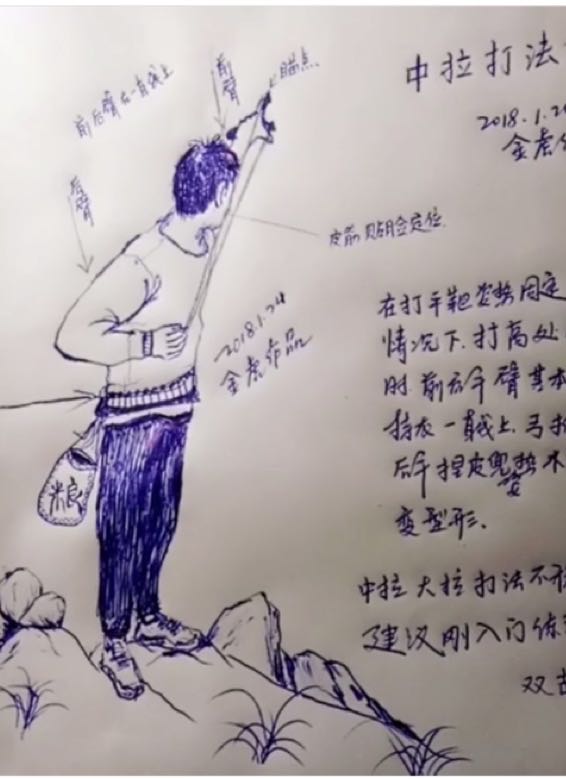 中拉打法
2018.1.24
金虎作
前臂
瞄点
前后臂在一直线上
后臂
皮筋贴脸定位
2018.1.24
金虎作品
在打平靶姿势固定
情况下.打高处
时.前后手臂基本
持在一直线上.弓把
后手捏皮兜势不
变型形.
粮
中拉大拉打法不
建议刚入门练
双